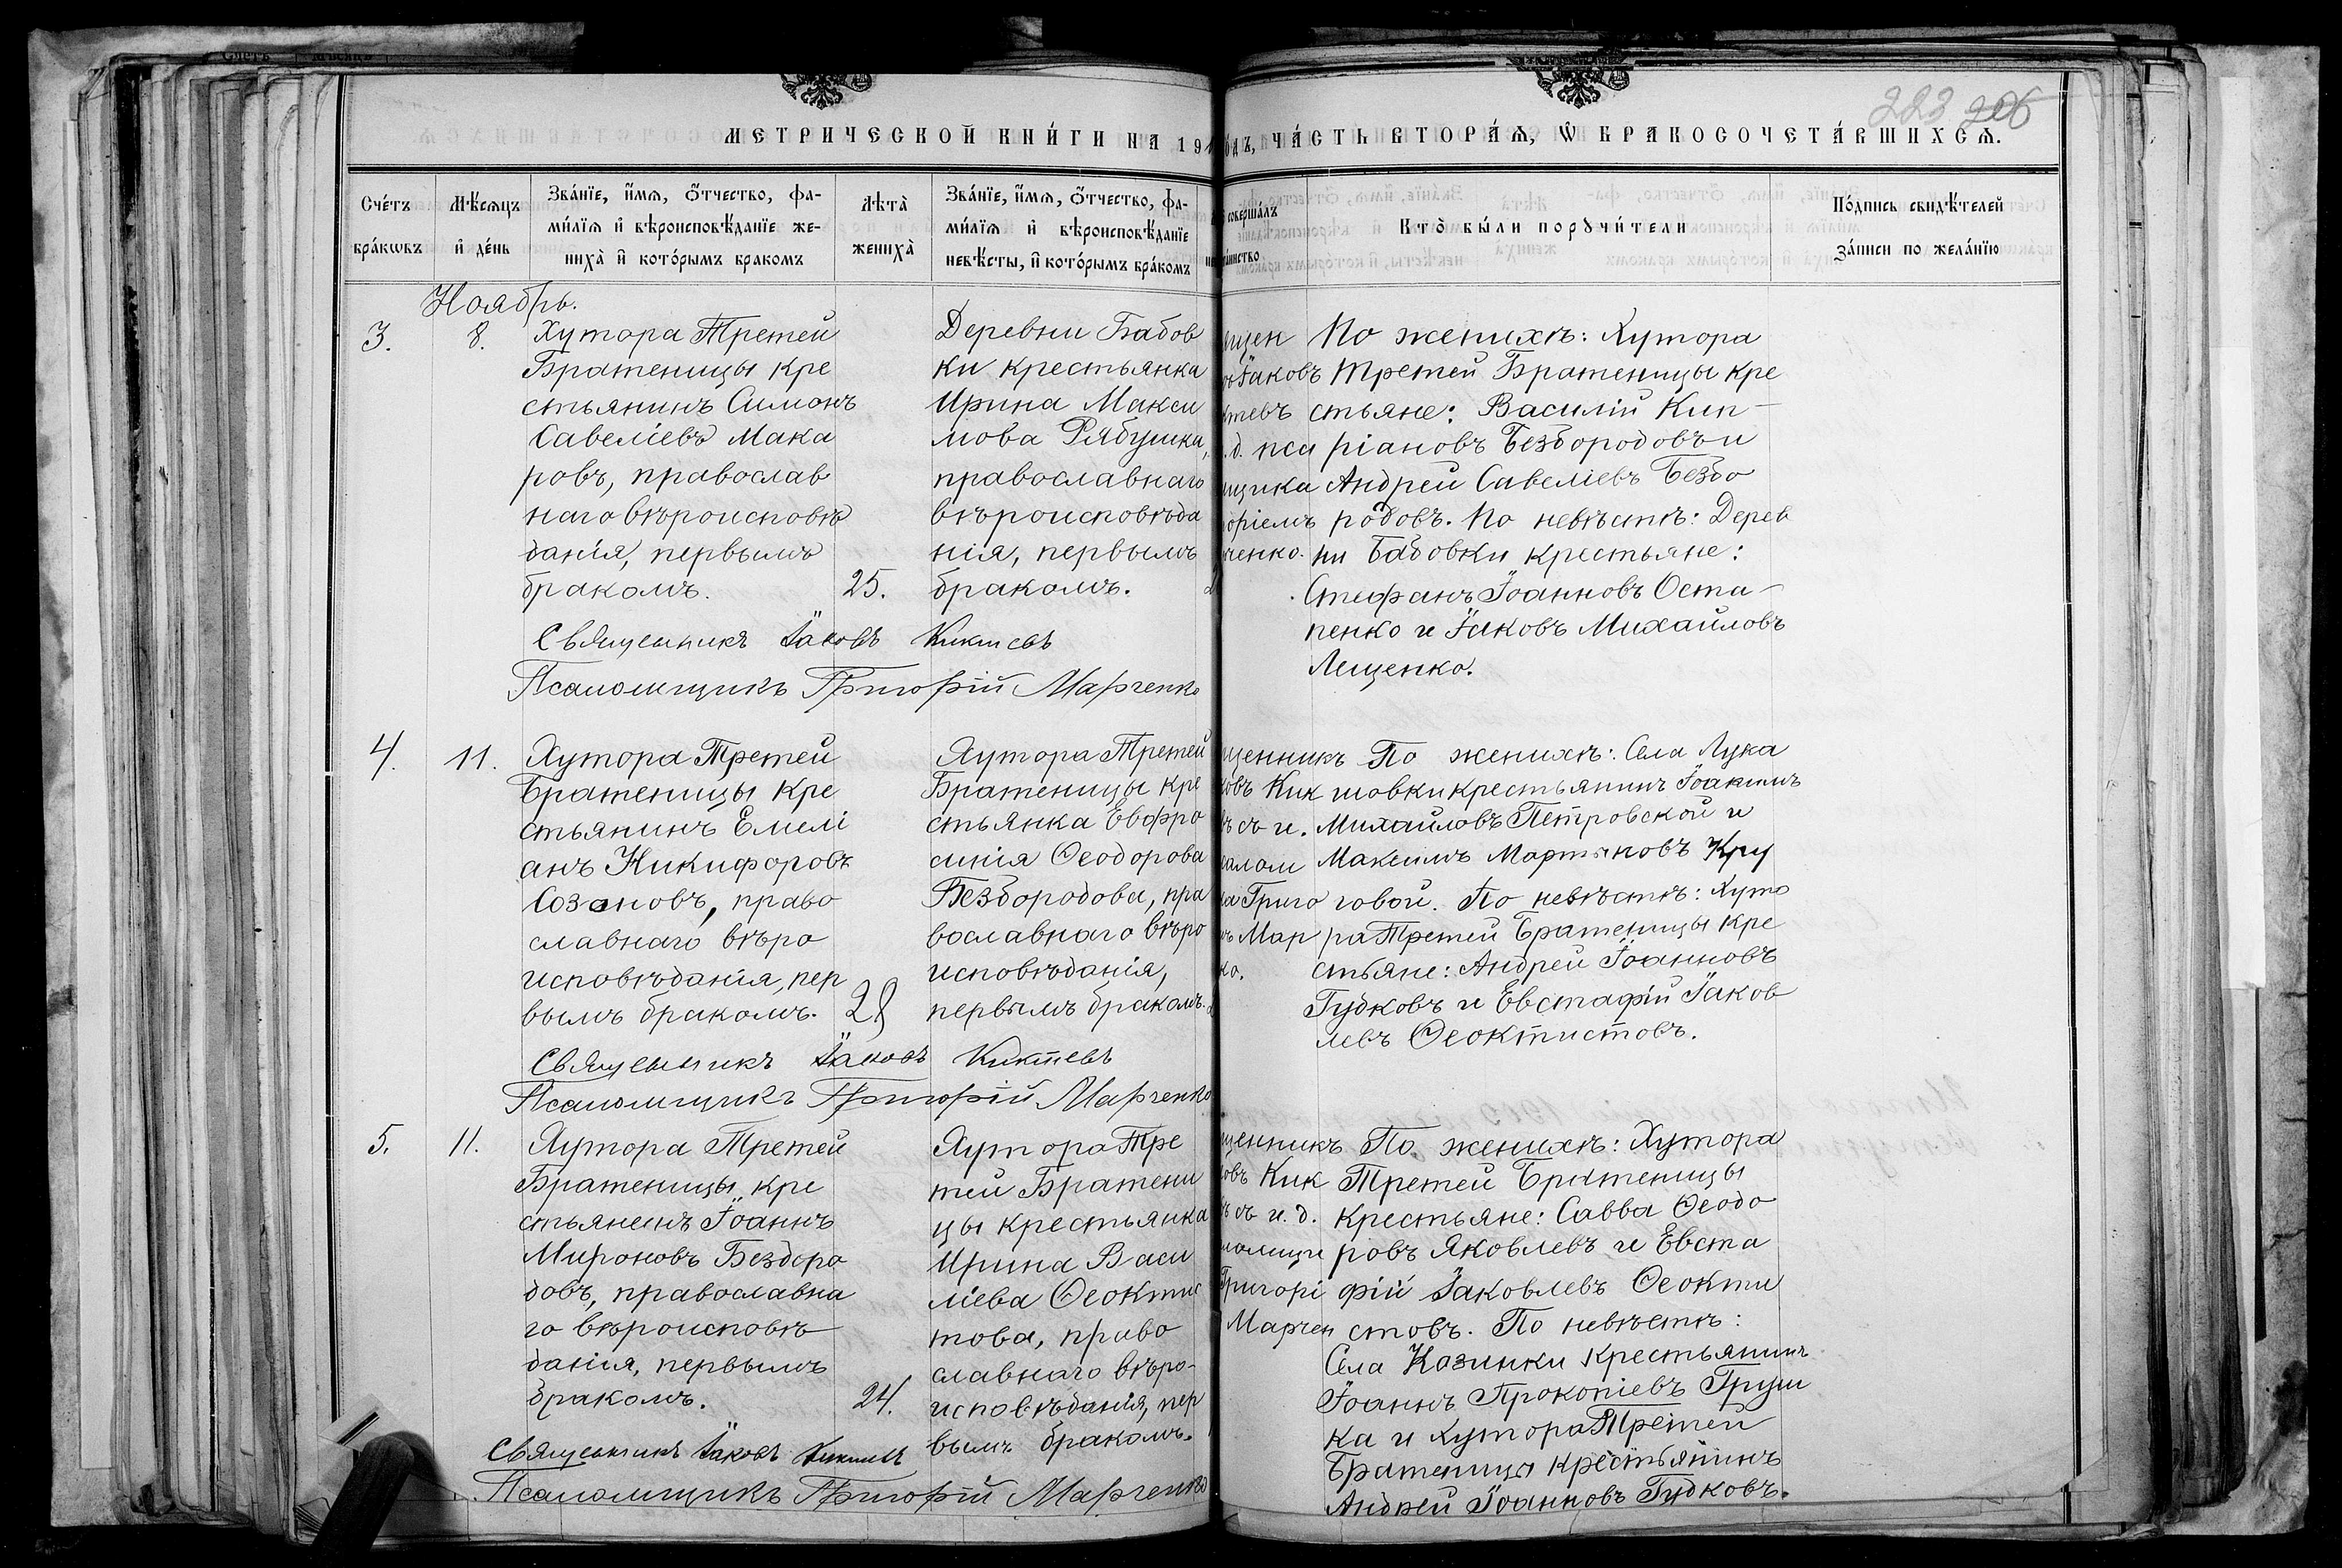 223 206
МЕТРИЧЕСКОЙ КНИ́ГИ НА 191
ЧА́СТЬ ВТОРА́Ѧ, Ѡ҆ БРАКОСОЧЕТА́ВШИХСѦ.
Сче́тъ бра́кѡвъ
Мѣ́сѧцъ и҆ де́нь
Зва́нїе, и҆́мѧ, ѻ҆́тчество, фа-
ми́лїѧ и҆ вѣроисповѣ́данїе же-
ниха̀ и҆ кото́рымъ бракомъ
Лѣта̀ жениха̀
Зва́нїе, и҆́мѧ, ѻ҆́тчество, фа-
ми́лїѧ и҆ вѣроисповѣ́данїе
невѣ́сты, и҆ кото́рымъ бра́комъ
соверша́лъ
таинство
Кто̀ бы́ли порꙋчи́тели
По́дпись свидѣ́телей
за́писи по жела́нїю
Ноябрь.
3.
8.
Хутора Третей
Братеницы кре
стьянинъ Симонъ
Савеліевъ Мака
ровъ, православ
наго вѣроисповѣ
данія, первымъ
бракомъ.
25.
Деревни Бабов
ки крестьянка
Ирина Макси
мова Рябушка,
православнаго
вѣроисповѣда
нія, первымъ
бракомъ.
щен
Іаковъ
ктевъ
д. пса
мщика
оріемъ
ченко.
По женихѣ: Хутора
Третей Братеницы кре
стьяне: Василій Кип-
ріановъ Безбородовъ и
Андрей Савеліевъ Безбо
родовъ. По невѣстѣ: Дерев
ни Бабовки крестьяне:
Стефанъ Іоанновъ Оста-
пенко и Іаковъ Михаиловъ
Лещенко.
Священникъ Іаковъ Киктевъ
Псаломщикъ Григорій Марченко
4.
11.
Хутора Третей
Братеницы кре
стьянинъ Емелі
анъ Никифоровъ
Созоновъ, право
славнаго вѣро
исповѣданія, пер
вымъ бракомъ.
28
Хутора Третей
Братеницы кре
стьянка Евфро
синія Ѳеодорова
Безбородова, пра
вославнаго вѣро
исповѣданія,
первымъ бракомъ.
щенникъ
ковъ Кик
ъ съ и.
алом
ка Григо
ъ Мар
ко.
По женихѣ: Села Лука
шовки крестьянинъ Іоакимъ
Михаиловъ Петровской и
Максимъ Мартыновъ Кру
говой. По невѣстѣ: Хуто
ра Третей Братеницы кре
стьяне: Андрей Іоанновъ
Гудковъ и Евстафій Іаков
левъ Ѳеоктистовъ.
Священникъ Іаковъ Киктевъ
Псаломщикъ Григорій Марченко
5.
11.
Хутора Третей
Братеницы кре
стьянинъ Іоаннъ
Мироновъ Безборо
довъ, православна
го вѣроисповѣ
данія, первымъ
бракомъ.
24.
Хутора Тре
тей Братени
цы крестьянка
Ирина Васи
ліева Ѳеоктис
това, право
славнаго вѣро-
исповѣданія, пер
вымъ бракомъ.
щенникъ
ковъ Кик
ъ съ и. д.
аломщи
Григорі
Марчен
По женихѣ: Хутора
Третей Братеницы
крестьяне: Савва Ѳеодо
ровъ Яковлевъ и Евста
фій Іаковлевъ Ѳеокти
стовъ. По невѣстѣ:
Села Козинки крестьянинъ
Іоаннъ Прокопіевъ Груш
ка и хутора Третей
Братеницы крестьянинъ
Андрей Іоанновъ Гудковъ.
Священникъ Іаковъ Киктевъ
Псаломщикъ Григорій Марченко